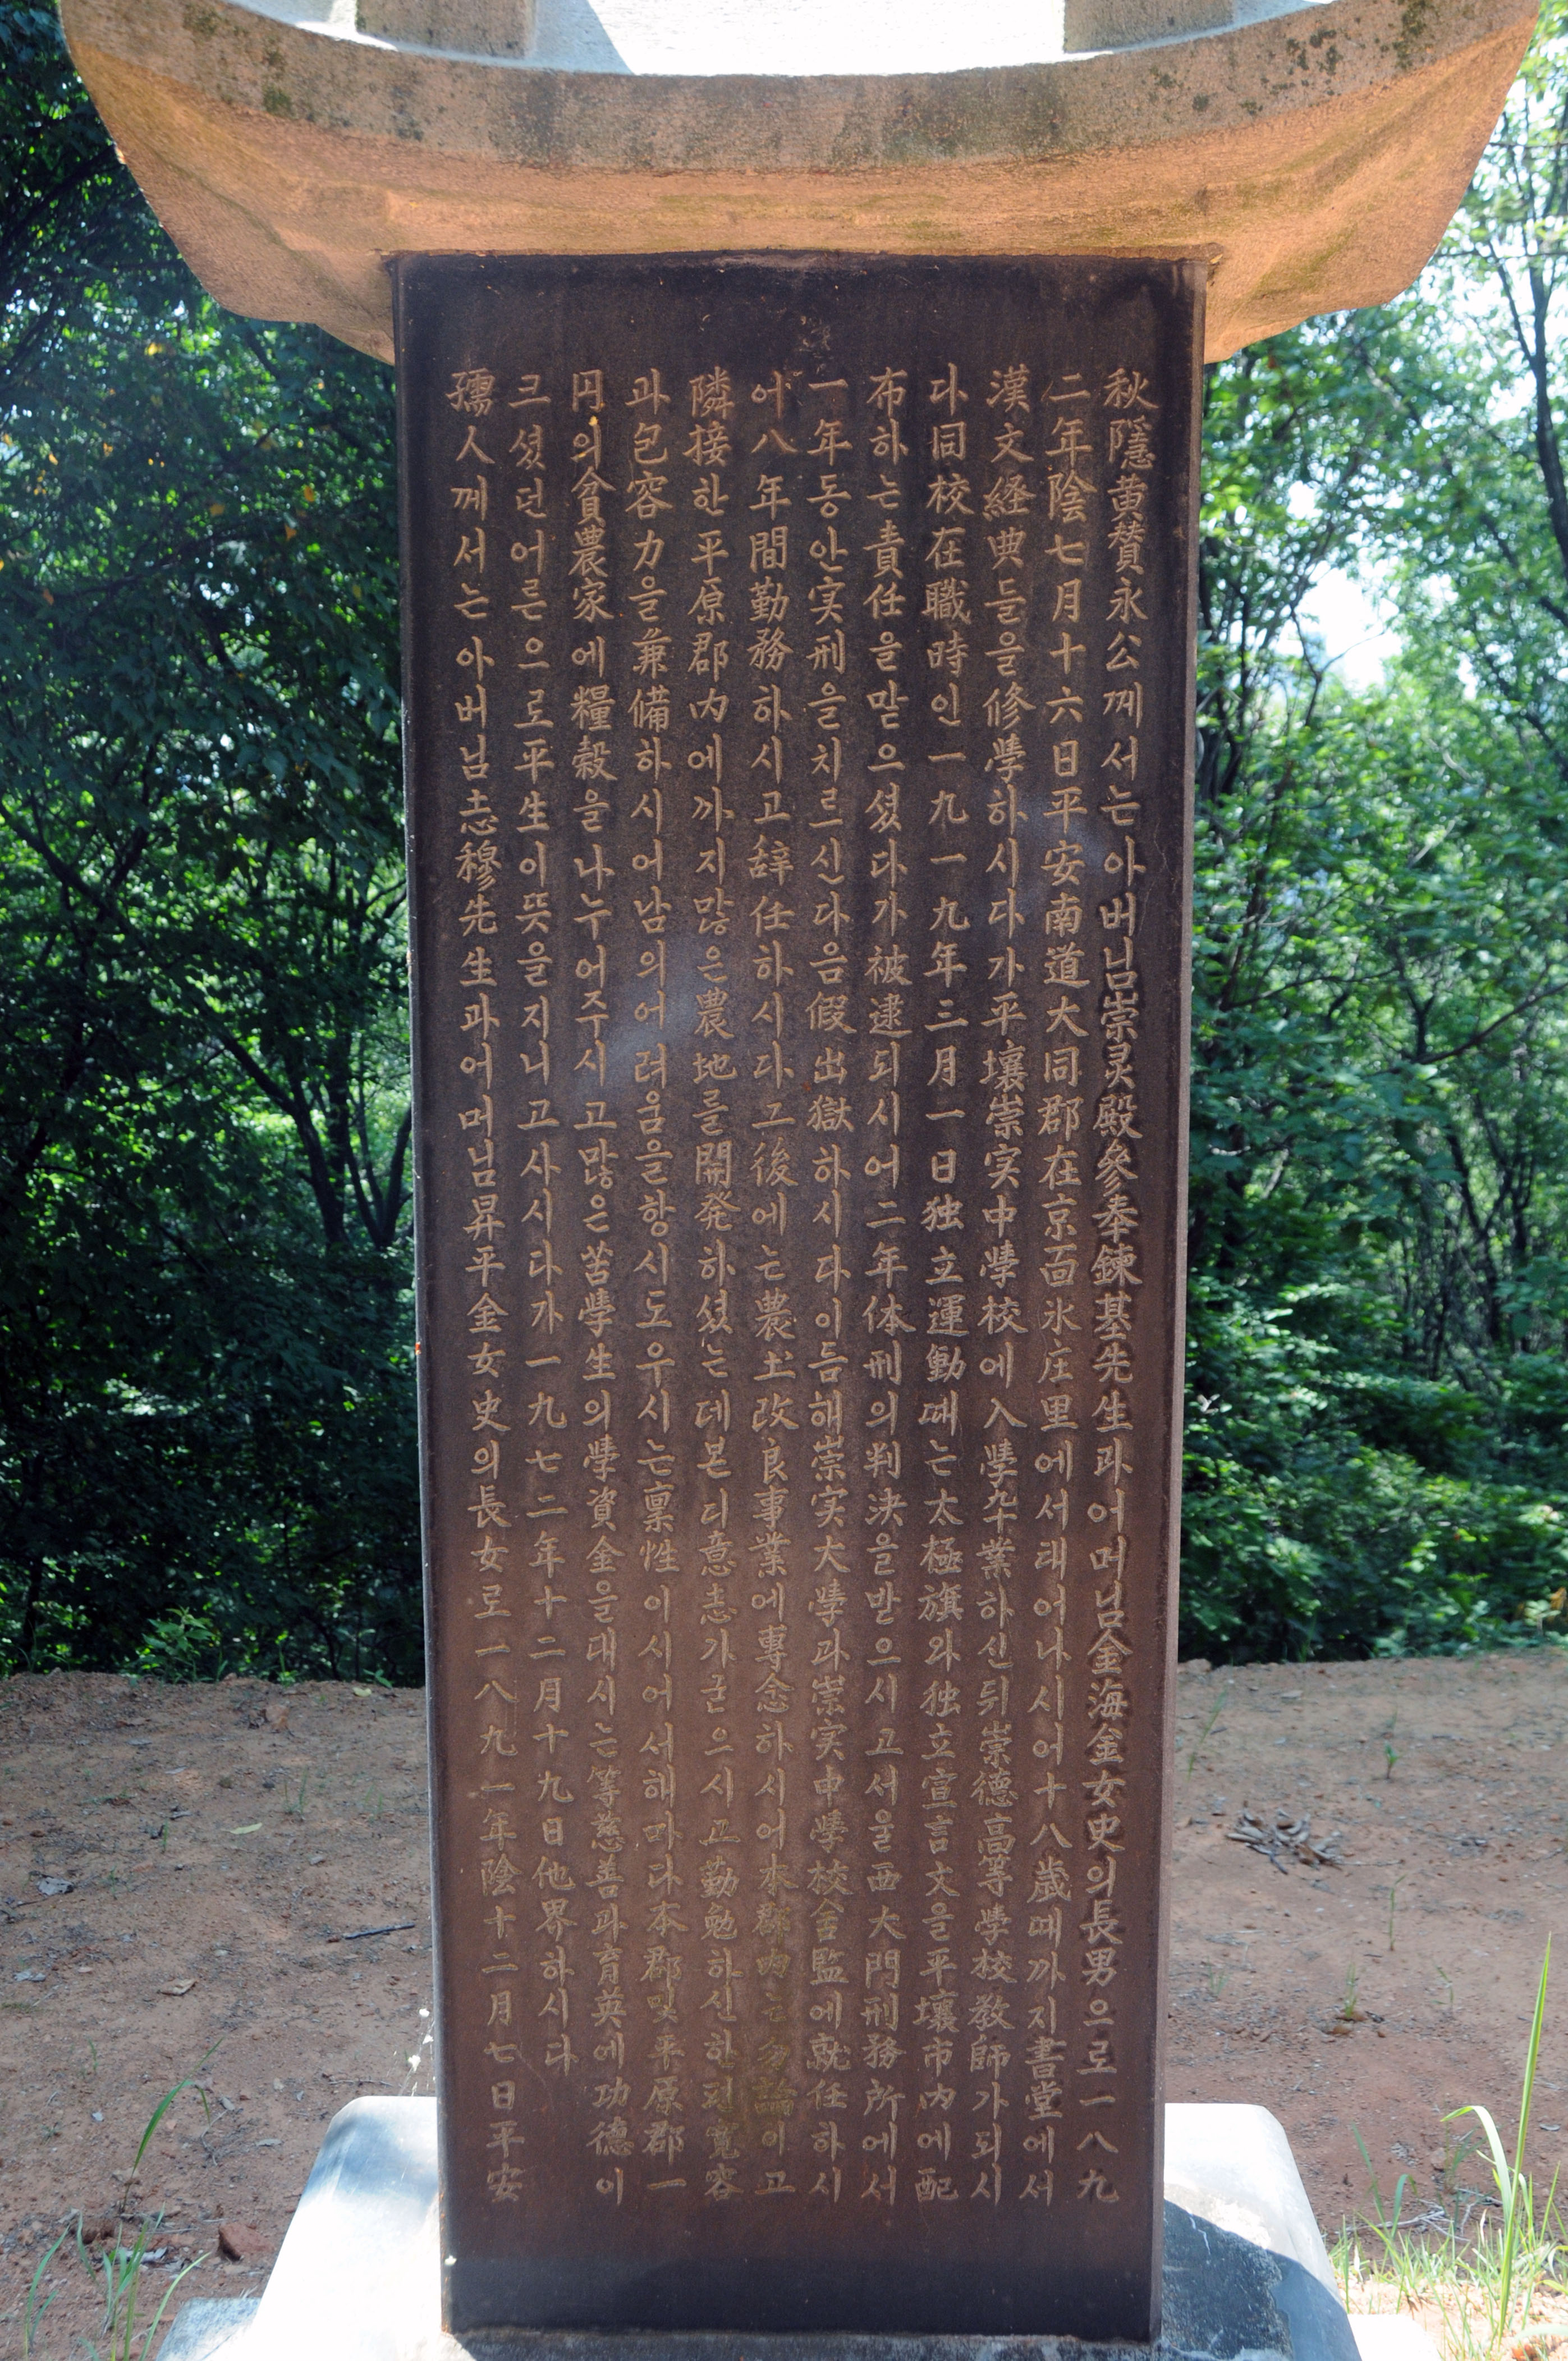 秋隱黄賛永公께서는아버님崇灵殿參奉鍊基先生과어머님金海金女史의長男으로一八九
二年陰七月十六日平安南道大同郡在京面氷庄里에서태어나시어十八歲때까지書堂에서
漢文経典들을修學하시다가平壤崇実中學校에入學卒業하신뒤崇德高等學校教師가되시
다同校在職時인一九一九年三月一日独立運動때는太極旗와独立宣言文을平壤市内에配
布하는責任을맡으셨다가被逮되시어二年体刑의判決을받으시고서울西大門刑務所에서
一年동안実刑을치르신다음假出獄하시다이듬해崇実大學과崇実中學校舍監에就任하시
어八年間勤務하시고辞任하시다그後에는農土改良事業에專念하시어本郡内는勿論이고
隣接한平原郡内에까지많은農地를開発하셨는데본디意志가굳으시고勤勉하신한편寬容
과包容力을兼備하시어남의어려움을항시도우시는稟性이시어서해마다本郡및平原郡一
円의貧農家에糧穀을나누어주시고많은苦學生의學資金을대시는等慈善과育英에功德이
크셨던어른으로平生이뜻을지니고사시다가一九七二年十二月十九日他界하시다
孺人께서는아버님志穆先生과어머님昇平金女史의長女로一八九一年陰十二月七日平安